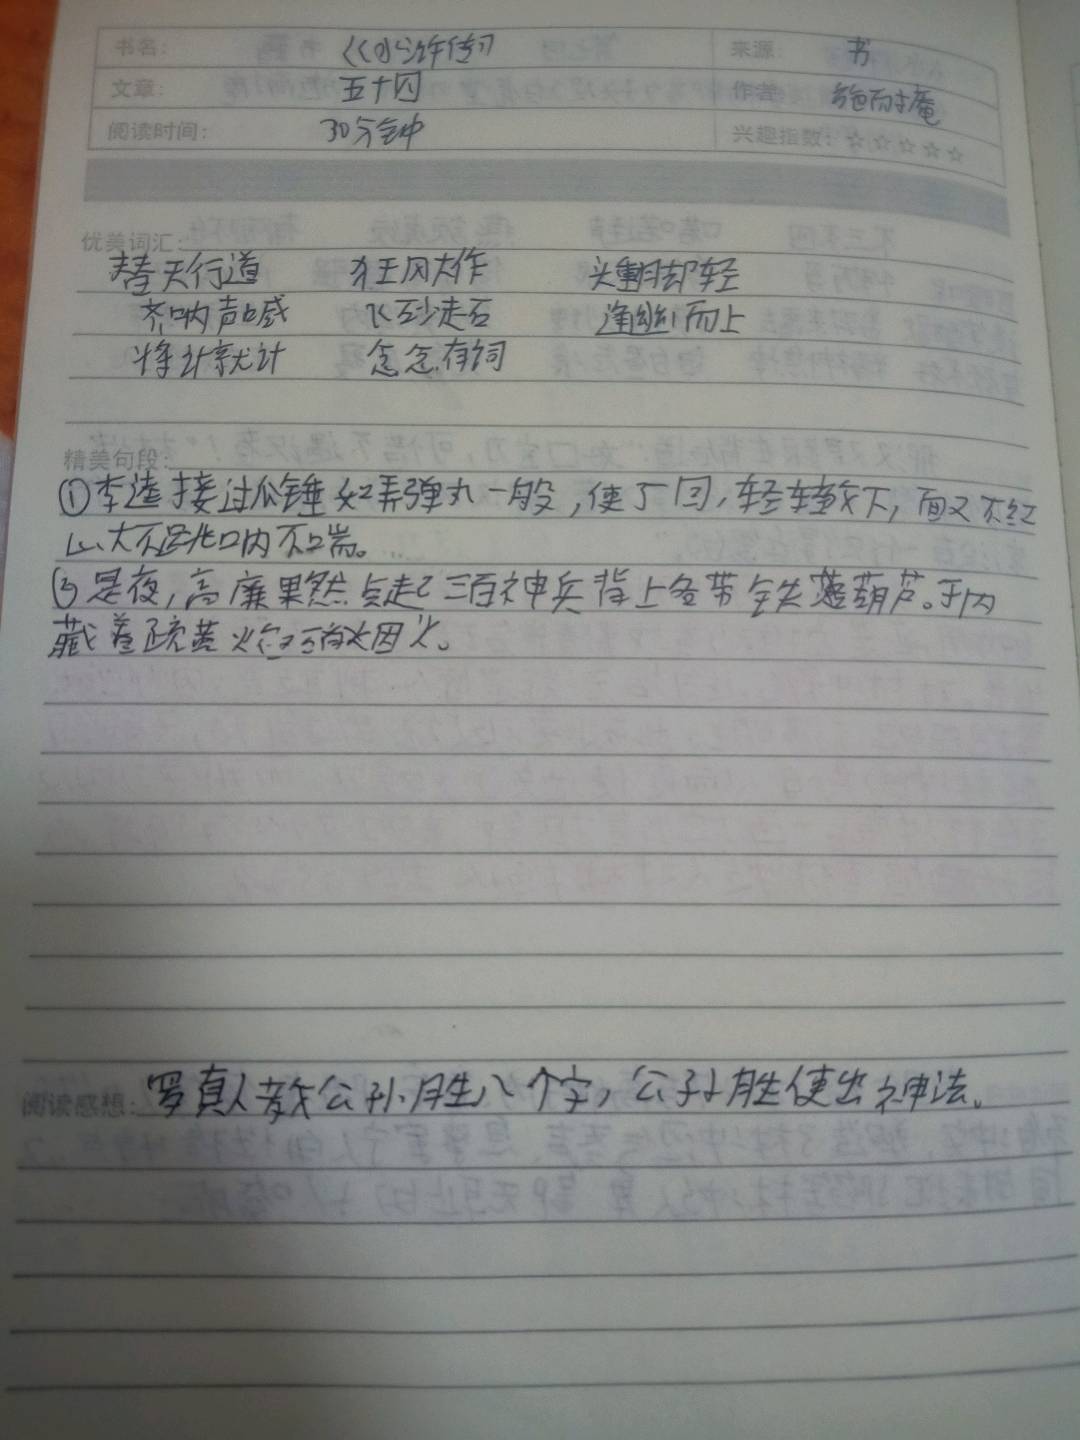 书名： 《水浒传》 来源： 书
文章： 五十四 作者： 施耐庵
阅读时间： 30分钟 兴趣指数：☆☆☆☆☆
优美词汇：
替天行道 狂风大作 头重脚轻
齐呐声喊 飞砂走石 逢幽而上
将计就计 念念有词
精美句段：
①李逵接过瓜锤如弄弹丸一般，使了回，轻轻放下，面又不红
心大不跳口内不喘。
③是夜，高廉果然点起三百神兵背上各带铁葫芦。于内
藏着硫黄焰硝烟火。
阅读感想： 罗真人教公孙胜八个字，公孙胜使出神法。